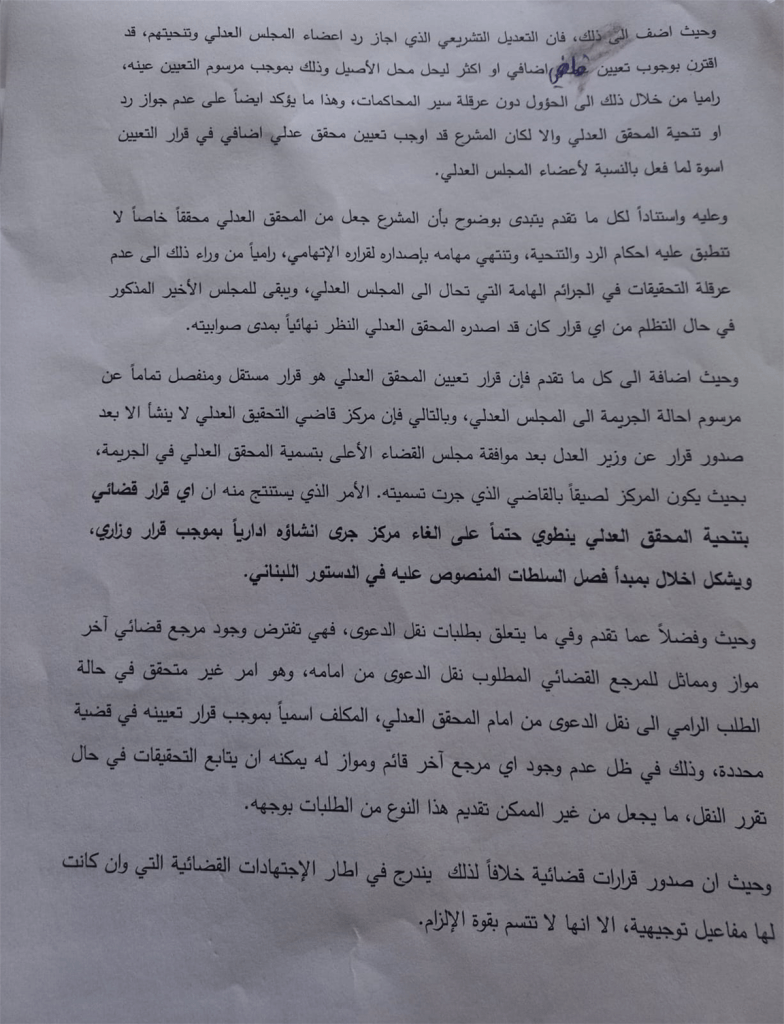 وحيث اضف الى ذلك، فان التعديل التشريعي الذي اجاز رد اعضاء المجلس العدلي وتنحيتهم، قد
اقترن بوجوب تعيين قاضي اضافي او اكثر ليحل محل الأصيل وذلك بموجب مرسوم التعيين عينه،
راميا من خلال ذلك الى الحؤول دون عرقلة سير المحاكمات، وهذا ما يؤكد ايضاً على عدم جواز رد
او تنحية المحقق العدلي والا لكان المشرع قد اوجب تعيين محقق عدلي اضافي في قرار التعيين
اسوة لما فعل بالنسبة لأعضاء المجلس العدلي.
وعليه واستناداً لكل ما تقدم يتبدى بوضوح بأن المشرع جعل من المحقق العدلي محققاً خاصاً لا
تنطبق عليه احكام الرد والتنحية، وتنتهي مهامه بإصداره لقراره الإتهامي، رامياً من وراء ذلك الى عدم
عرقلة التحقيقات في الجرائم الهامة التي تحال الى المجلس العدلي، ويبقى للمجلس الأخير المذكور
في حال التظلم من اي قرار كان قد اصدره المحقق العدلي النظر نهائياً بمدى صوابيته.
وحيث اضافة الى كل ما تقدم فإن قرار تعيين المحقق العدلي هو قرار مستقل ومنفصل تماماً عن
مرسوم احالة الجريمة الى المجلس العدلي، وبالتالي فإن مركز قاضي التحقيق العدلي لا ينشأ الا بعد
صدور قرار عن وزير العدل بعد موافقة مجلس القضاء الأعلى بتسمية المحقق العدلي في الجريمة،
بحيث يكون المركز لصيقاً بالقاضي الذي جرت تسميته. الأمر الذي يستنتج منه ان اي قرار قضائي
بتنحية المحقق العدلي ينطوي حتماً على الغاء مركز جرى انشاؤه ادارياً بموجب قرار وزاري،
ويشكل اخلال بمبدأ فصل السلطات المنصوص عليه في الدستور اللبناني.
وحيث وفضلاً عما تقدم وفي ما يتعلق بطلبات نقل الدعوى، فهي تفترض وجود مرجع قضائي آخر
مواز ومماثل للمرجع القضائي المطلوب نقل الدعوى من امامه، وهو امر غير متحقق في حالة
الطلب الرامي الى نقل الدعوى من امام المحقق العدلي، المكلف اسمياً بموجب قرار تعيينه في قضية
محددة، وذلك في ظل عدم وجود اي مرجع آخر قائم ومواز له يمكنه ان يتابع التحقيقات في حال
تقرر النقل، ما يجعل من غير الممكن تقديم هذا النوع من الطلبات بوجهه.
وحيث ان صدور قرارات قضائية خلافاً لذلك يندرج في اطار الإجتهادات القضائية التي وان كانت
لها مفاعيل توجيهية، الا انها لا تتسم بقوة الإلزام.